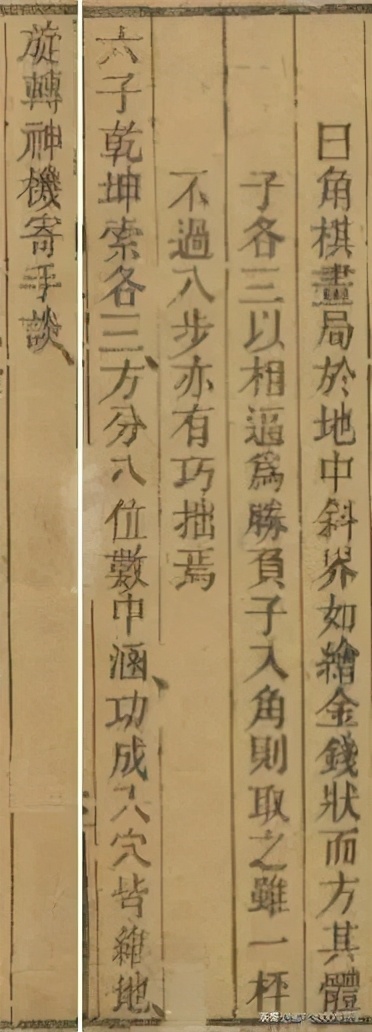 曰角棋畫局於地中斜界如繪金錢狀而方其體
子各三以相逼爲勝負子入角則取之雖一枰
不過八步亦有巧拙焉
六子乾坤索各三方分八位數中涵功成入穴皆維地
旋轉神機寄手談